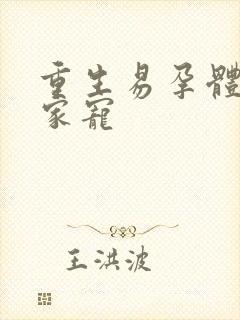 重生易孕體
家寵
王洪波